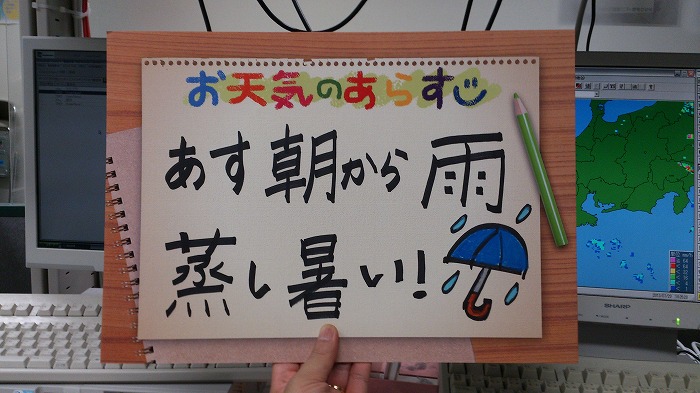 お天気のあらすじ
あす朝から雨
蒸し暑い!
SHARP